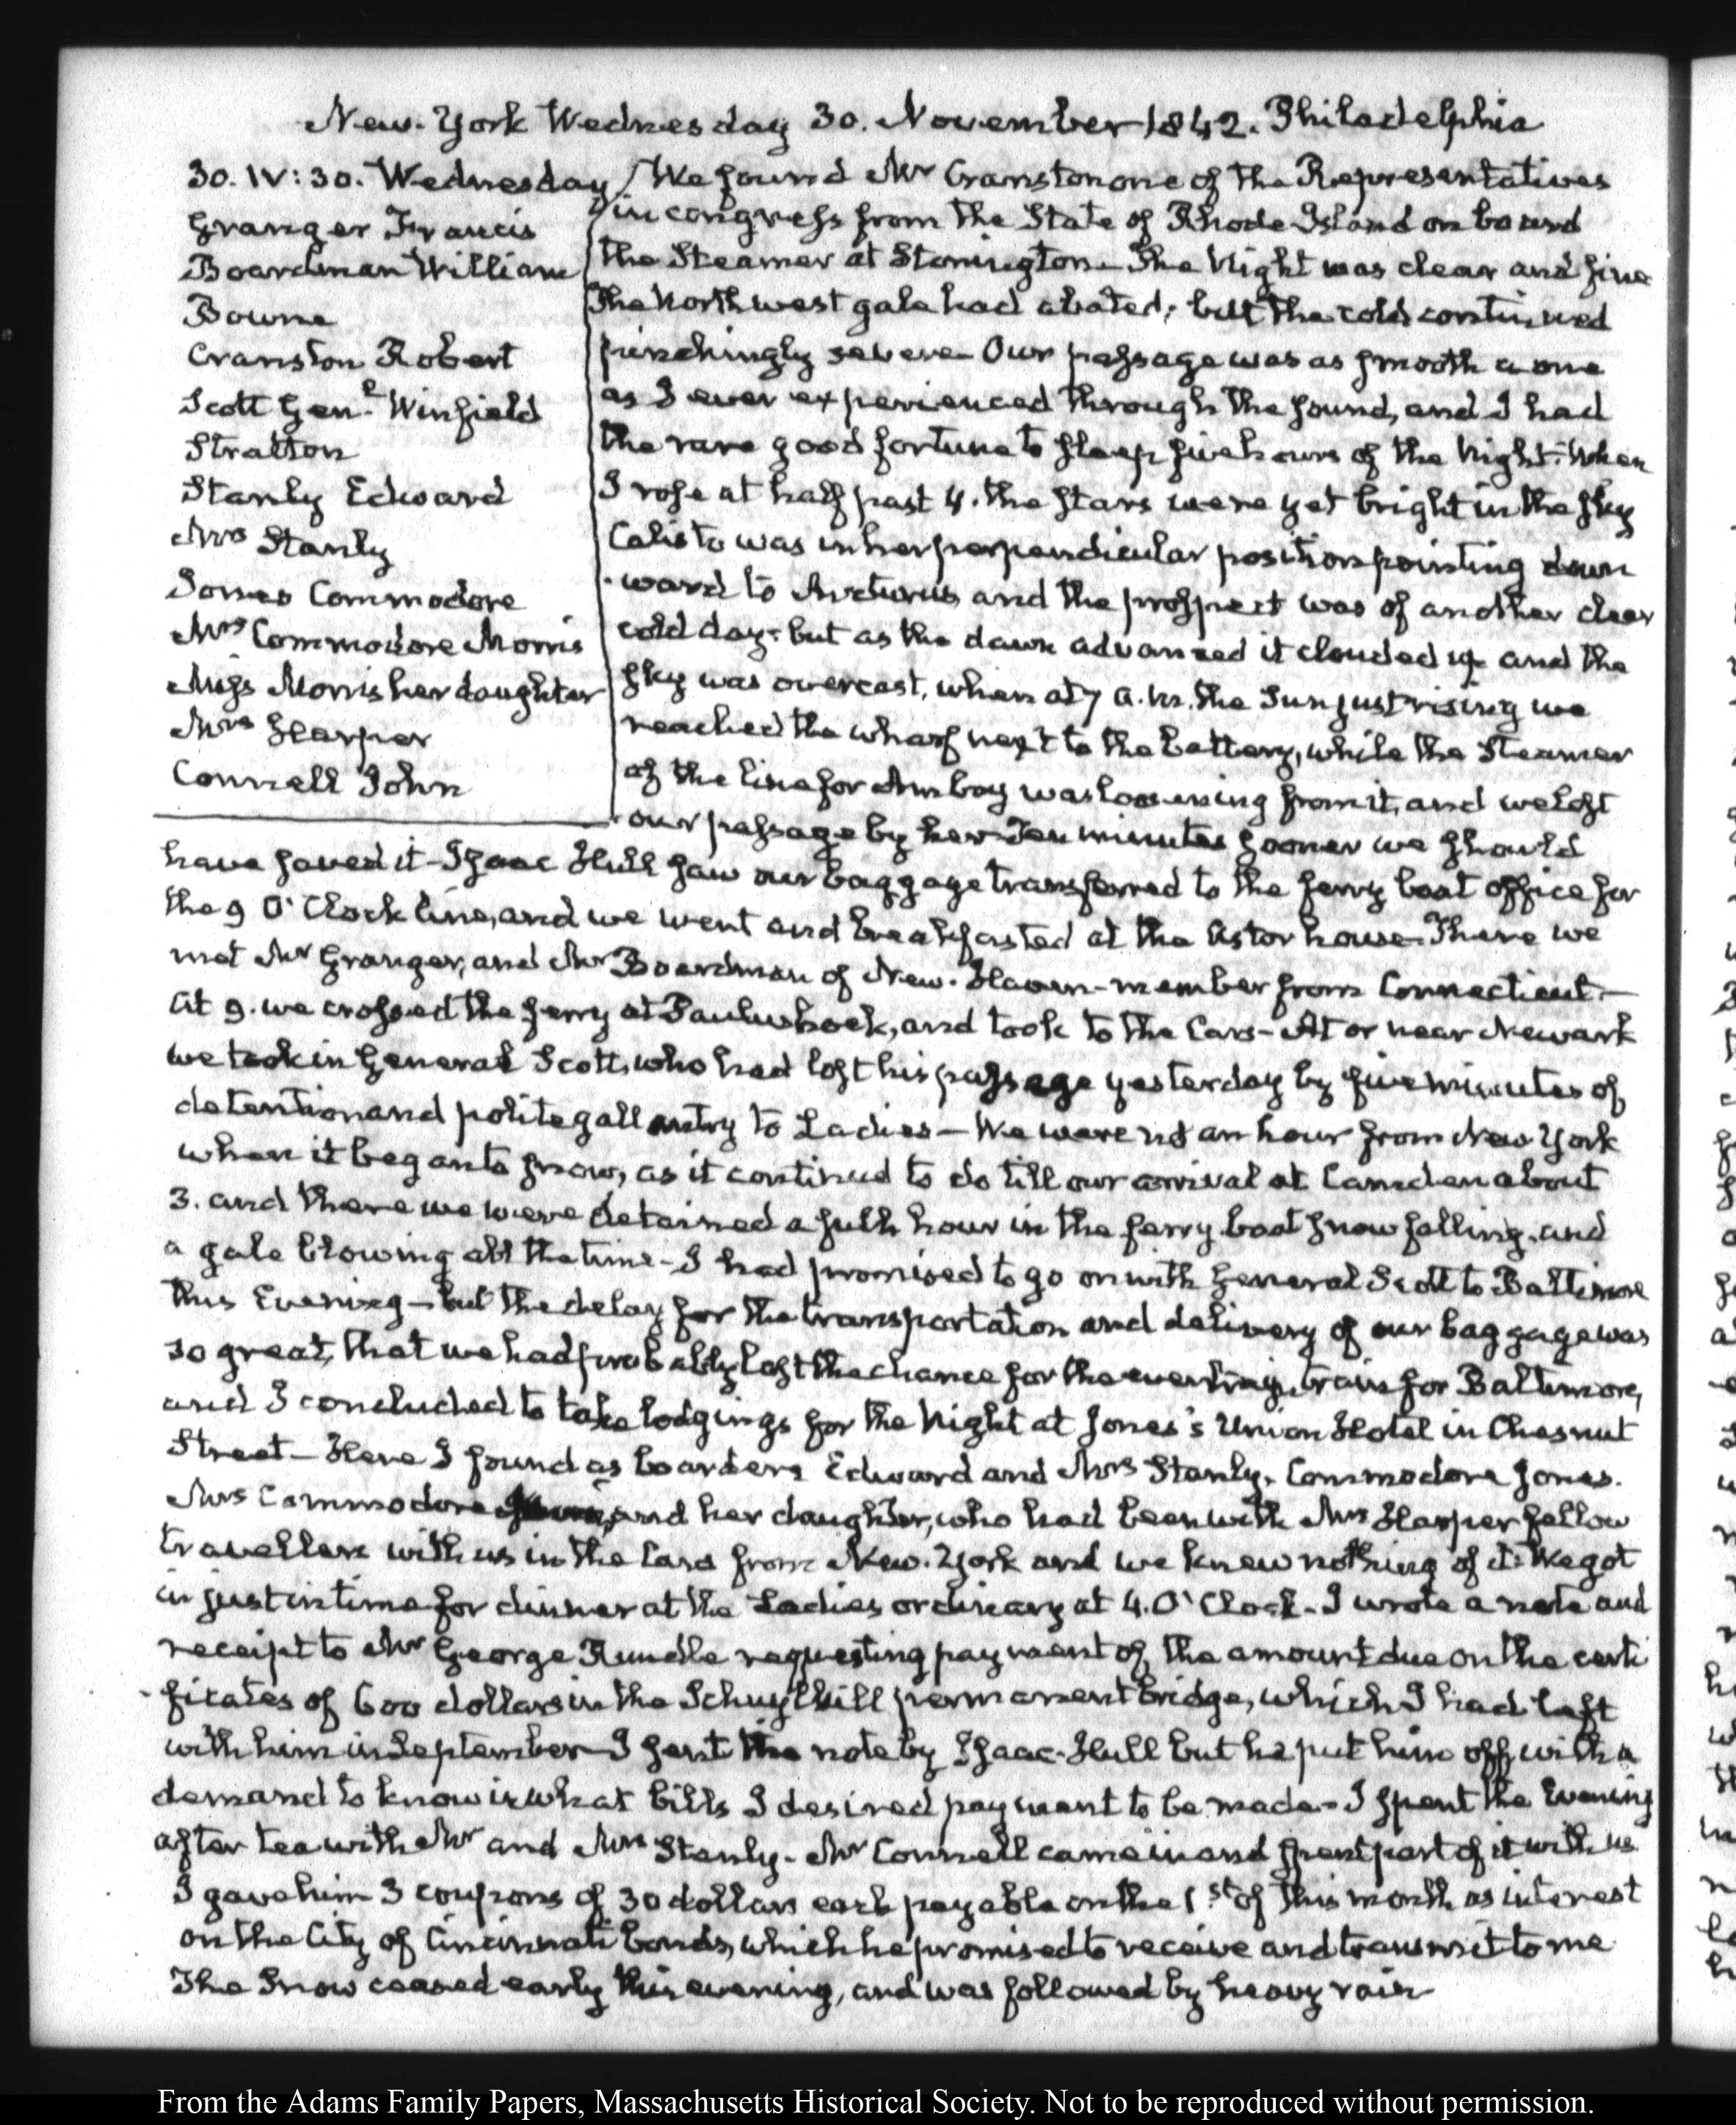 New-York Wednesday 30. November 1842. Philadelphia
30. IV:30. Wednesday
Granger Francis
Boardman William
Bowne
Cranston Robert
Scott Genl. Winfield
Stratton
Stanly Edward
Mrs Stanly
Jones Commodore
Mrs Commodore Morris
Miss Morris her daughter
Mrs Harper
Connell John
We found Mr Cranston one of the Representatives
in congress from the State of Rhode Island on board
the Steamer at Stonington. The Night was clear and fine
The North west gale had abated; but the cold continued
pinchingly severe. Our passage was as smooth a one
as I ever experienced through the sound, and I had
the rare good fortune to sleep five hours of the Night. When
I rose at half past 4. the stars were yet bright in the sky
Calisto was in her perpendicular position pointing down
-ward to Arcturus, and the prospect was of another clear
cold day; but as the dawn advanced it clouded up and the
sky was overcast, when at 7 a.m. the Sun just rising we
reached the wharf next to the battery, while the Steamer
of the line for Amboy was loosening from it, and we lost
our passage by her. Ten minutes sooner we should
have saved it. Isaac Hull saw our baggage transferred to the ferry boat office for
the 9 O'Clock line, and we went and breakfasted at the Astor house. There we
met Mr Granger, and Mr Boardman of New-Haven-member from Connecticut.—
At 9. we crossed the ferry at Paulus hook, and took to the Cars- At or near Newark
we took in General Scott, who had lost his passage yesterday by five minutes of
detention and polite gallantry to Ladies — We were not an hour from New York
when it began to snow, as it continued to do till our arrival at Camden about
3. and there we were detained a full hour in the ferry boat snow falling, and
a gale blowing all the time- I had promised to go on with General Scott to Baltimore
this Evening — but the delay for the transportation and delivery of our baggage was
so great, that we had probably lost the chance for the evening train for Baltimore,
and I concluded to take lodgings for the Night at Jones's Union Hotel in Chesnut
Street — Here I found as boarders Edward and Mrs Stanly, Commodore Jones.
Mrs Commodore and her daughter, who had been with Mrs Harper fellow
travellers with us in the Cars from New-York and we knew nothing of it. We got
in just in time for dinner at the Ladies ordinary at 4. O'Clock- I wrote a note and
receipt to Mr George Rundle requesting payment of the amount due on the certi
-ficates of 600 dollars in the Schuylkill permanent bridge, which I had left
with him in September- I sent the note by Isaac-Hull but he put him off with a
demand to know in what bills I desired payment to be made- I spent the Evening
after tea with Mr and Mrs Stanly- Mr Connell came in and spent part of it with us
I gave him 3 coupons of 30 dollars each payable on the 1st. of this month as interest
on the City of Cincinnati bonds, which he promised to receive and transmit to me
The Snow ceased early this evening, and was followed by heavy rain
From the Adams Family Papers, Massachusetts Historical Society. Not to be reproduced without permission.